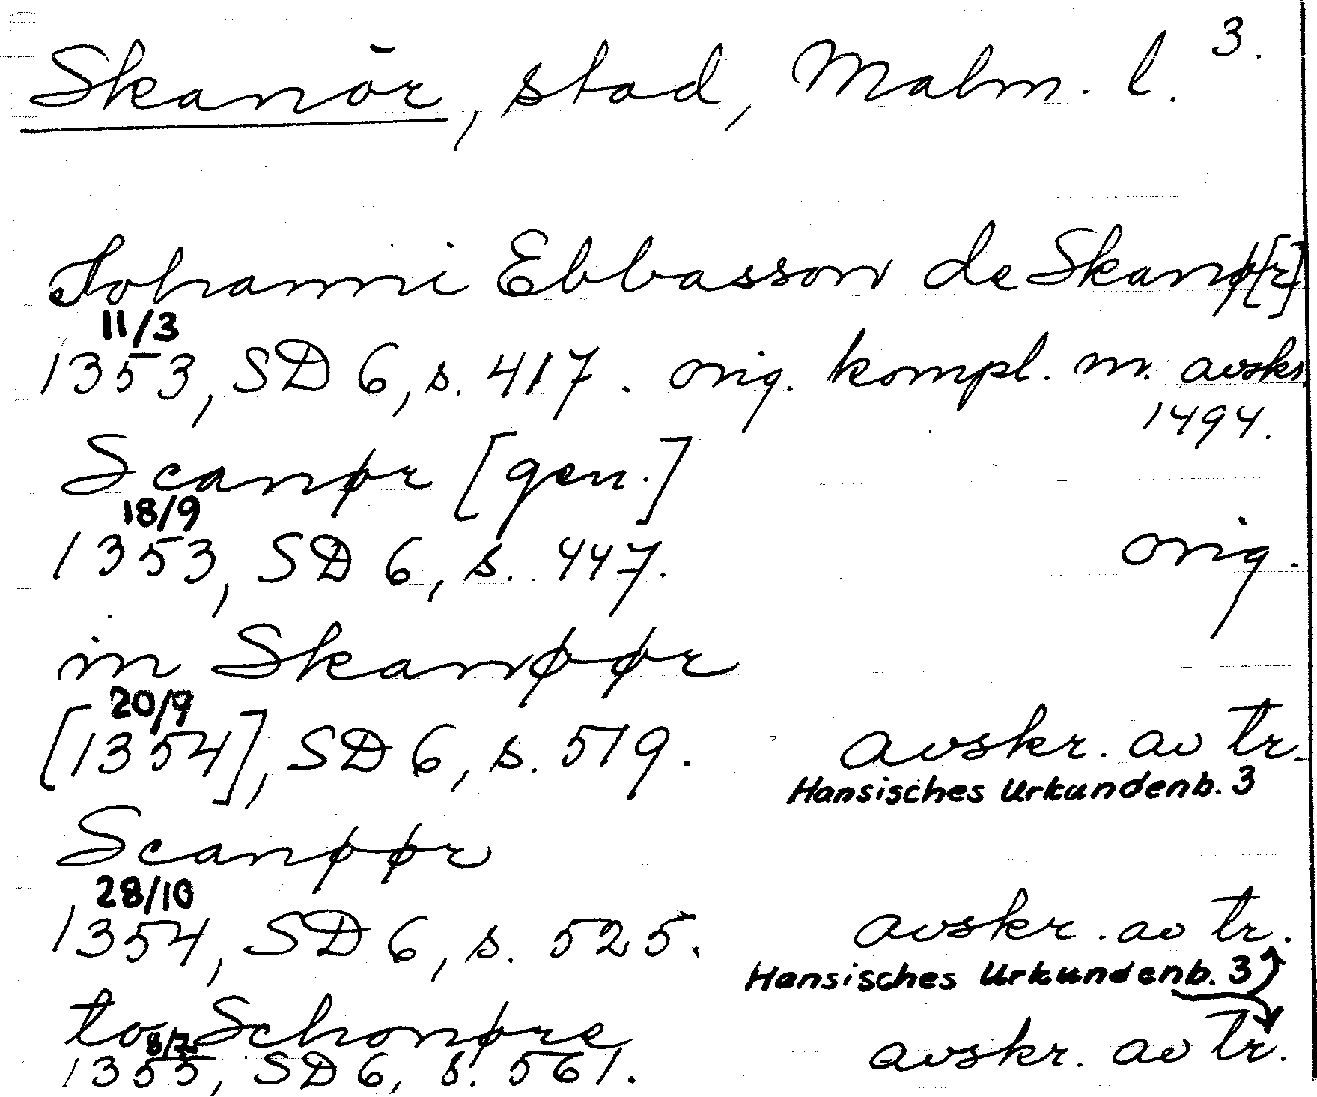 3.
Skanör, stad, Malm. l.
Johanni Ebbasson de Skanø[r]
11/3
1353, SD 6, s. 417. orig. kompl. m. avskr.
1494.
Scanør [gen.]
18/9
1353, SD 6, s. 447. orig.
in Skanøør
20/9
[1354], SD 6, s. 519. avskr. av tr.
Hansisches Urkundenb. 3
Scanøør
28/10
1354, SD 6, s. 525. avskr. av tr.
Hansisches Urkundenb. 3
to Schonøre
1355, SD 6, s. 561. avskr. av tr.